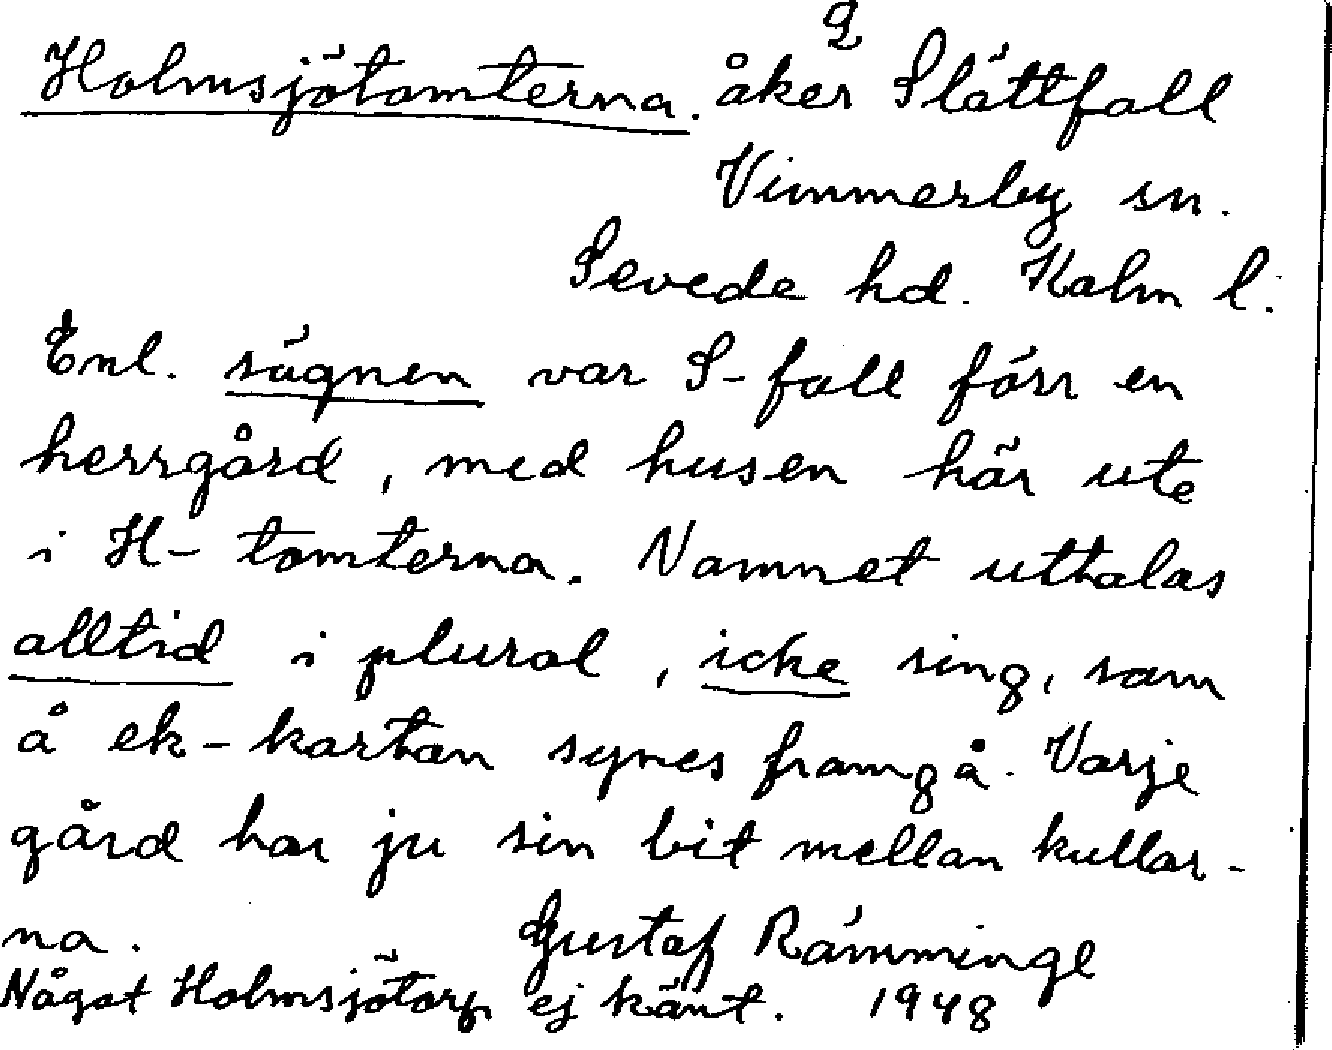 Holmsjötomterna. åker Slättfall
Vimmerby sn.
Sevede hd. Kalm l.
Enl. sägnen var S-fall förr en
herrgård, med husen här ute
i H- tomterna. Namnet uttalas
alltid i plural, icke sing, som
å ek-kartan synes framgå. Varje
gård har ju sin bit mellan kullar-
na. Gustaf Rämminge
Något Holmsjötorp ej känt. 1948